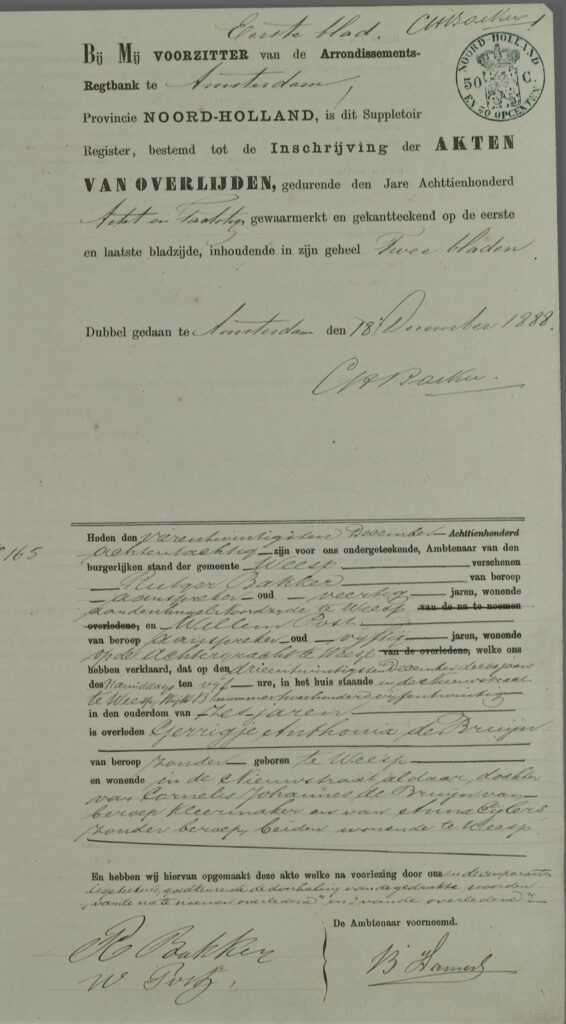 Eerste blad.
CHBacker
NOORD HOLLAND
50 C.
EN 50 OPCENTEN
Bij Mij VOORZITTER van de Arrondissements-
Regtbank te Amsterdam,
Provincie NOORD-HOLLAND, is dit Suppletoir
Register, bestemd tot de Inschrijving der AKTEN
VAN OVERLIJDEN, gedurende den Jare Achttienhonderd
Acht en Tachtig gewaarmerkt en gekantteekend op de eerste
en laatste bladzijde, inhoudende in zijn geheel Twee bladen
Dubbel gedaan te Amsterdam den 18 December 1888.
CHBacker.
165
Heden den vierentwintigsten December Achttienhonderd
achtentachtig zijn voor ons ondergeteekende, Ambtenaar van den
burgerlijken stand der gemeente Weesp verschenen
Rutger Bakker van beroep
aanspreker oud veertig jaren, wonende
aan den Singel Noordzijde te Weesp van de na te noemen
overledene, en Willem Post
van beroep aanspreker oud vijftig jaren, wonende
op de Achtergracht te Weesp van de overledene, welke ons
hebben verklaard, dat op den drieëntwintigsten December dezes jaars
des Namiddags ten vijf ure, in het huis staande in de Nieuwstraat
te Weesp, Wijk B nummer tweehonderd vijfentwintig
in den ouderdom van Zes jaren
is overleden Gerrigje Anthonia de Bruijn
van beroep zonder geboren te Weesp
en wonende in de Nieuwstraat aldaar, dochter
van Cornelis Johannes de Bruijn van
beroep Kleermaker en van Anna Eijlers
zonder beroep, beiden wonende te Weesp
En hebben wij hiervan opgemaakt deze akte welke na voorlezing door ons en de comparanten
is geteekend, goedkeurende de doorhaling van de gedrukte woorden
"van de na te noemen overledene" en "van de overledene"
De Ambtenaar voornoemd.
R Bakker
W Post,